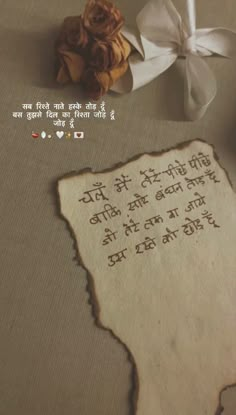 सब रिश्ते नाते हंसके तोड़ दूँ
बस तुझसे दिल का रिश्ता जोड़ दूँ
जोड़ दूँ
चलूँ मैं तेरे पीछे पीछे
बाकि सारे बंधन तोड़ दूँ
जो तेरे तक ना जाये
उस रस्ते को छोड़ दूँ